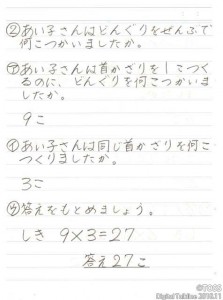 ②あい子さんはどんぐりをぜんぶで
何こつかいましたか。
㋐あい子さんは首かざりを1こつく
るのに、どんぐりを何こつかいま
したか。
9こ
㋑あい子さんは同じ首かざりを何こ
つくりましたか。
3こ
㋒答えをもとめましょう。
しき 9×3=27
答え27こ
©TOSS
DigitalTalkline,2010.11